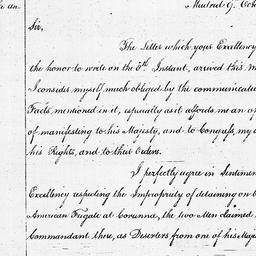 Madrid 9. Octo
Sir,
The Letter which your Excellency
the honor to write on the 5th Instant, arrived this m
I consider myself much obliged by the communicatio
Facts mentioned in it, especially as it affords me an o
of manifesting to his Majesty, and to Congress, my d
his Rights, and to their Orders.
I perfectly agree in Sentimen
Excellency respecting the Impropriety of detaining on b
American Frigate at Corunna, the two Men claimed
Commandant there, as Deserters from one of his Maje